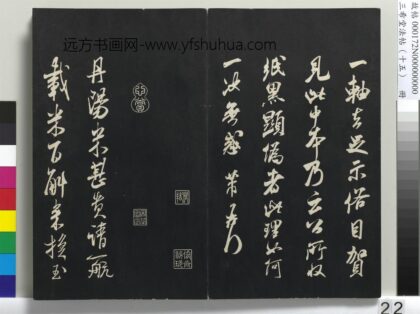 远方书画网-www.yfshuhua.com
故帖000172N000000000
三希堂法帖（十五） 册
一軸去是示俗目賀
見此中本乃之公所收
紙黑顯偽者此理如何
一決無惑 芾頓首
丹陽米甚貴請一航
載米百斛來換玉
22